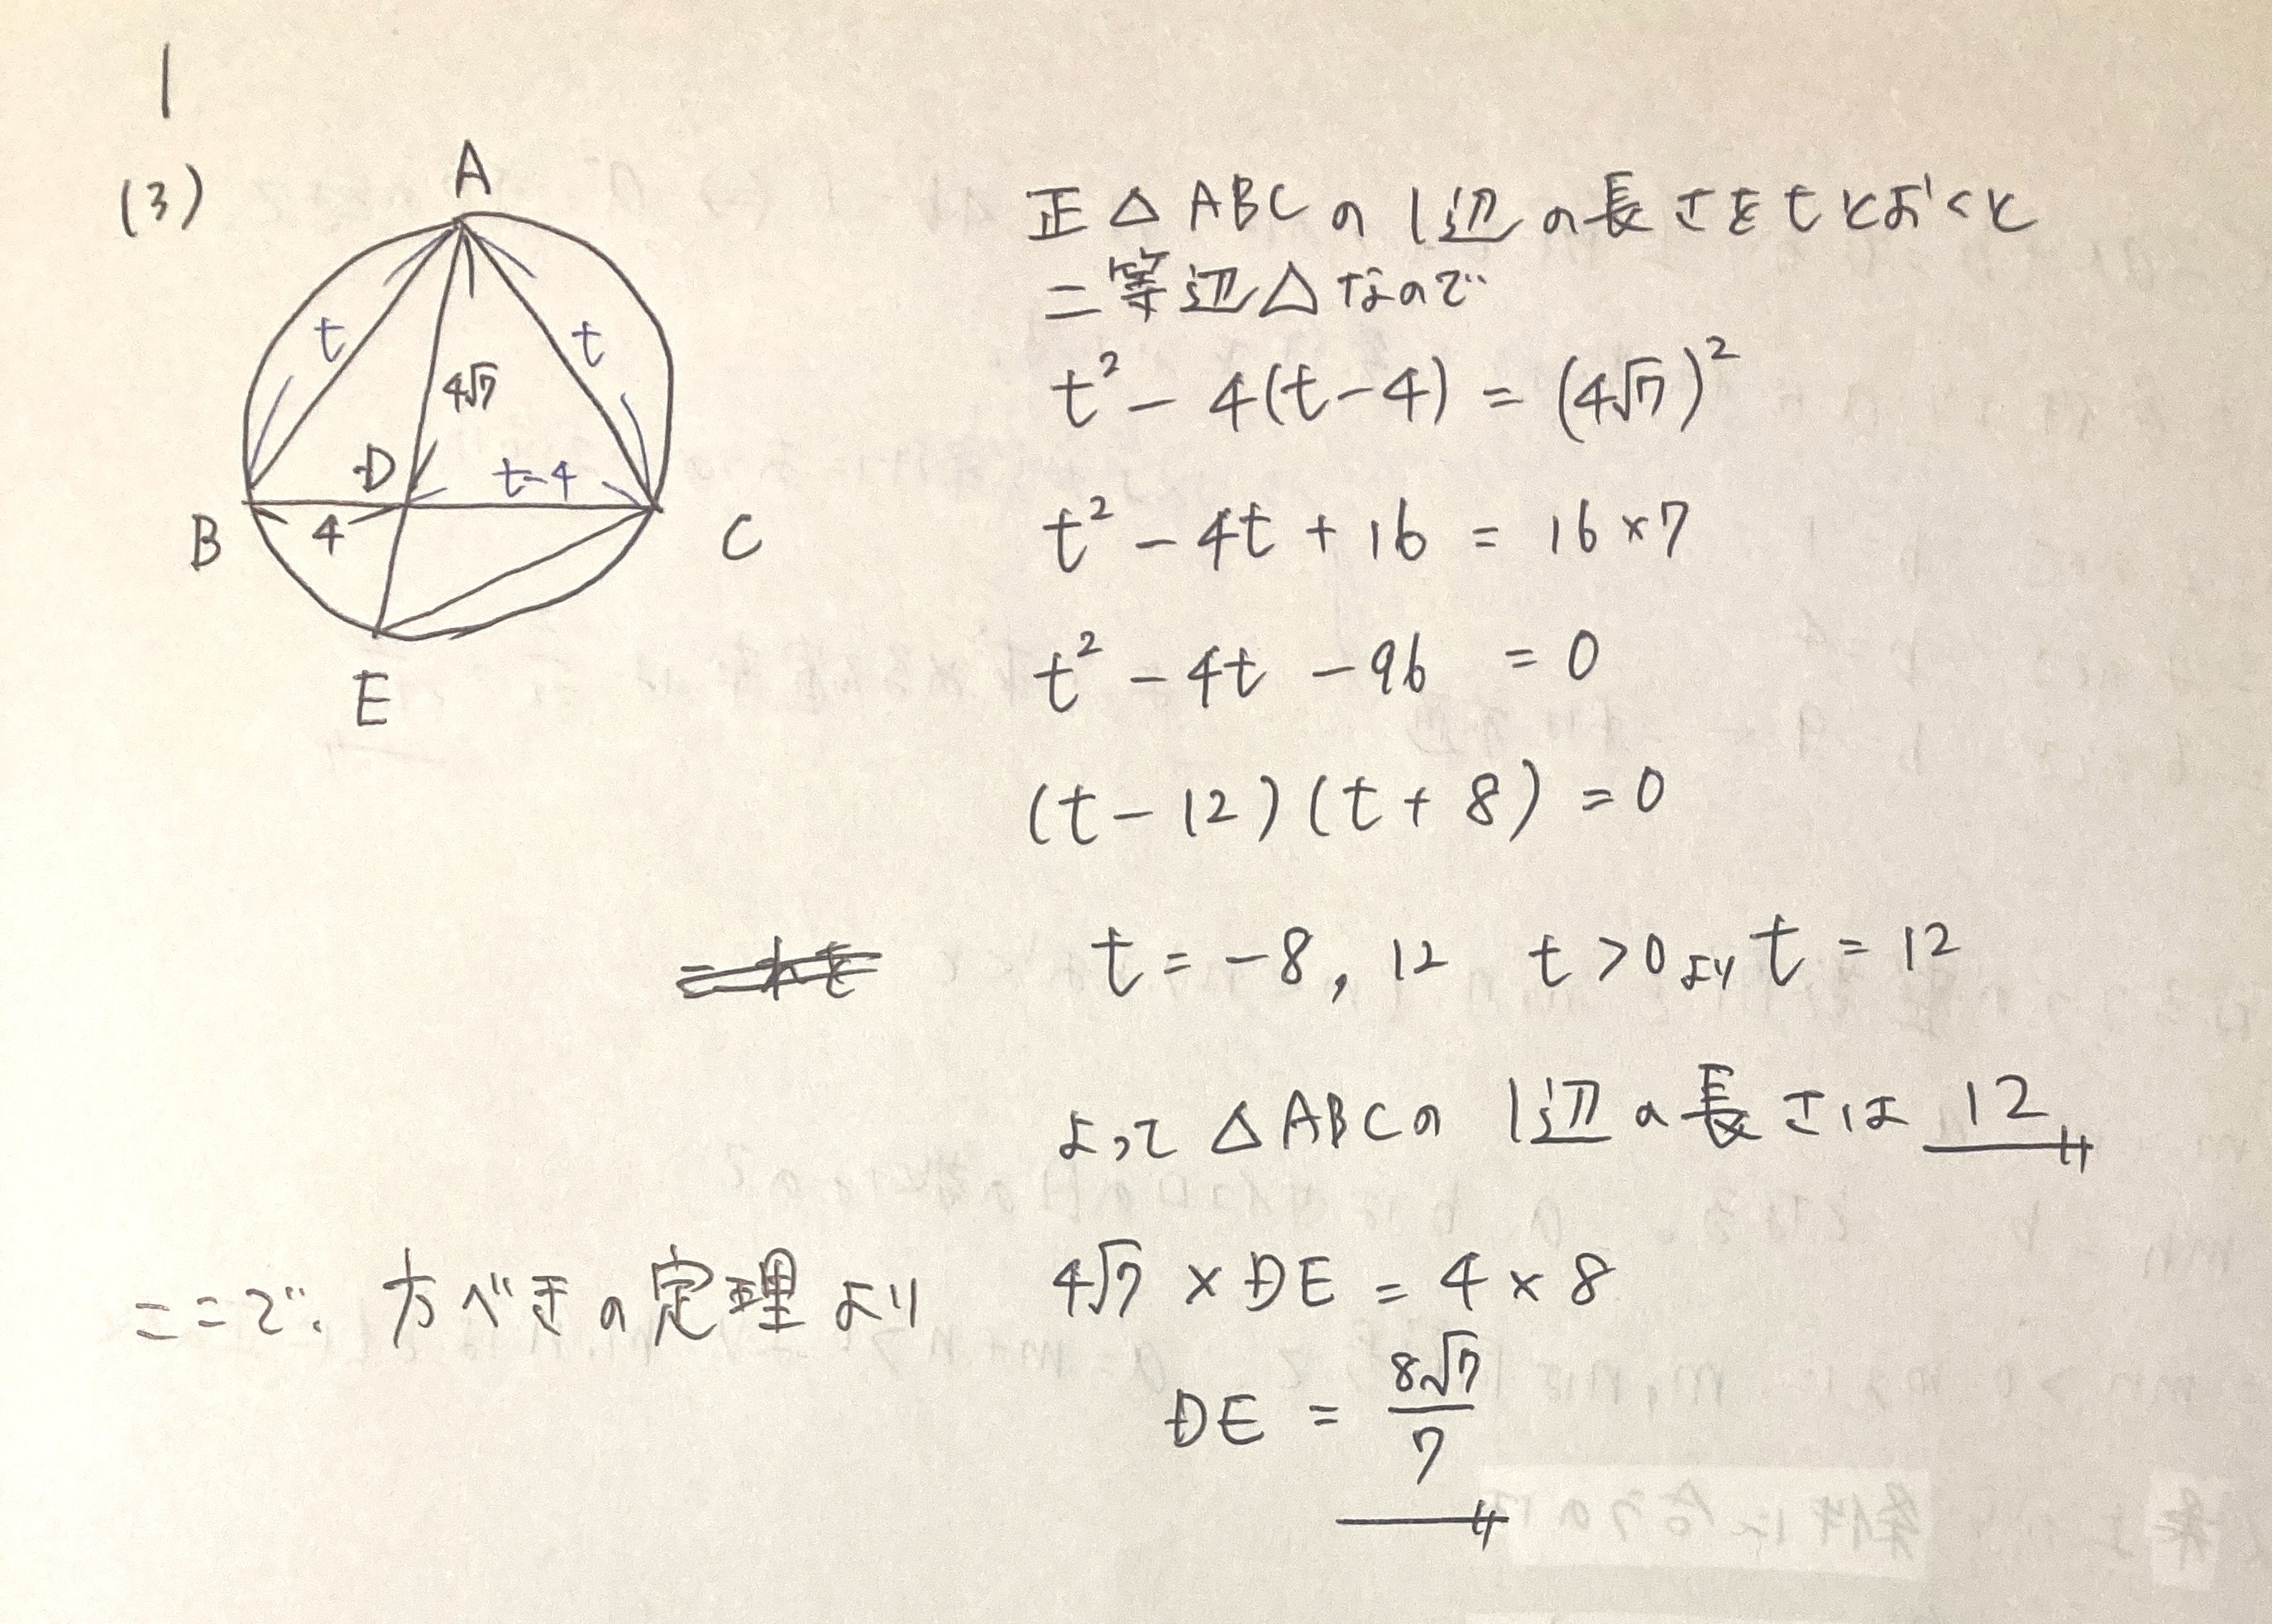 1
(3)
A
t
t
4√7
D
t-4
B
4
C
E
正△ABCの1辺の長さをtとおくと
二等辺△なので
t² - 4(t-4) = (4√7)²
t² - 4t + 16 = 16×7
t² - 4t - 96 = 0
(t-12)(t+8) = 0
t = -8, 12 t>0より t = 12
よって △ABCの 1辺の長さは 12
ここで、方べきの定理より 4√7 × DE = 4 × 8
DE = 8√7/7